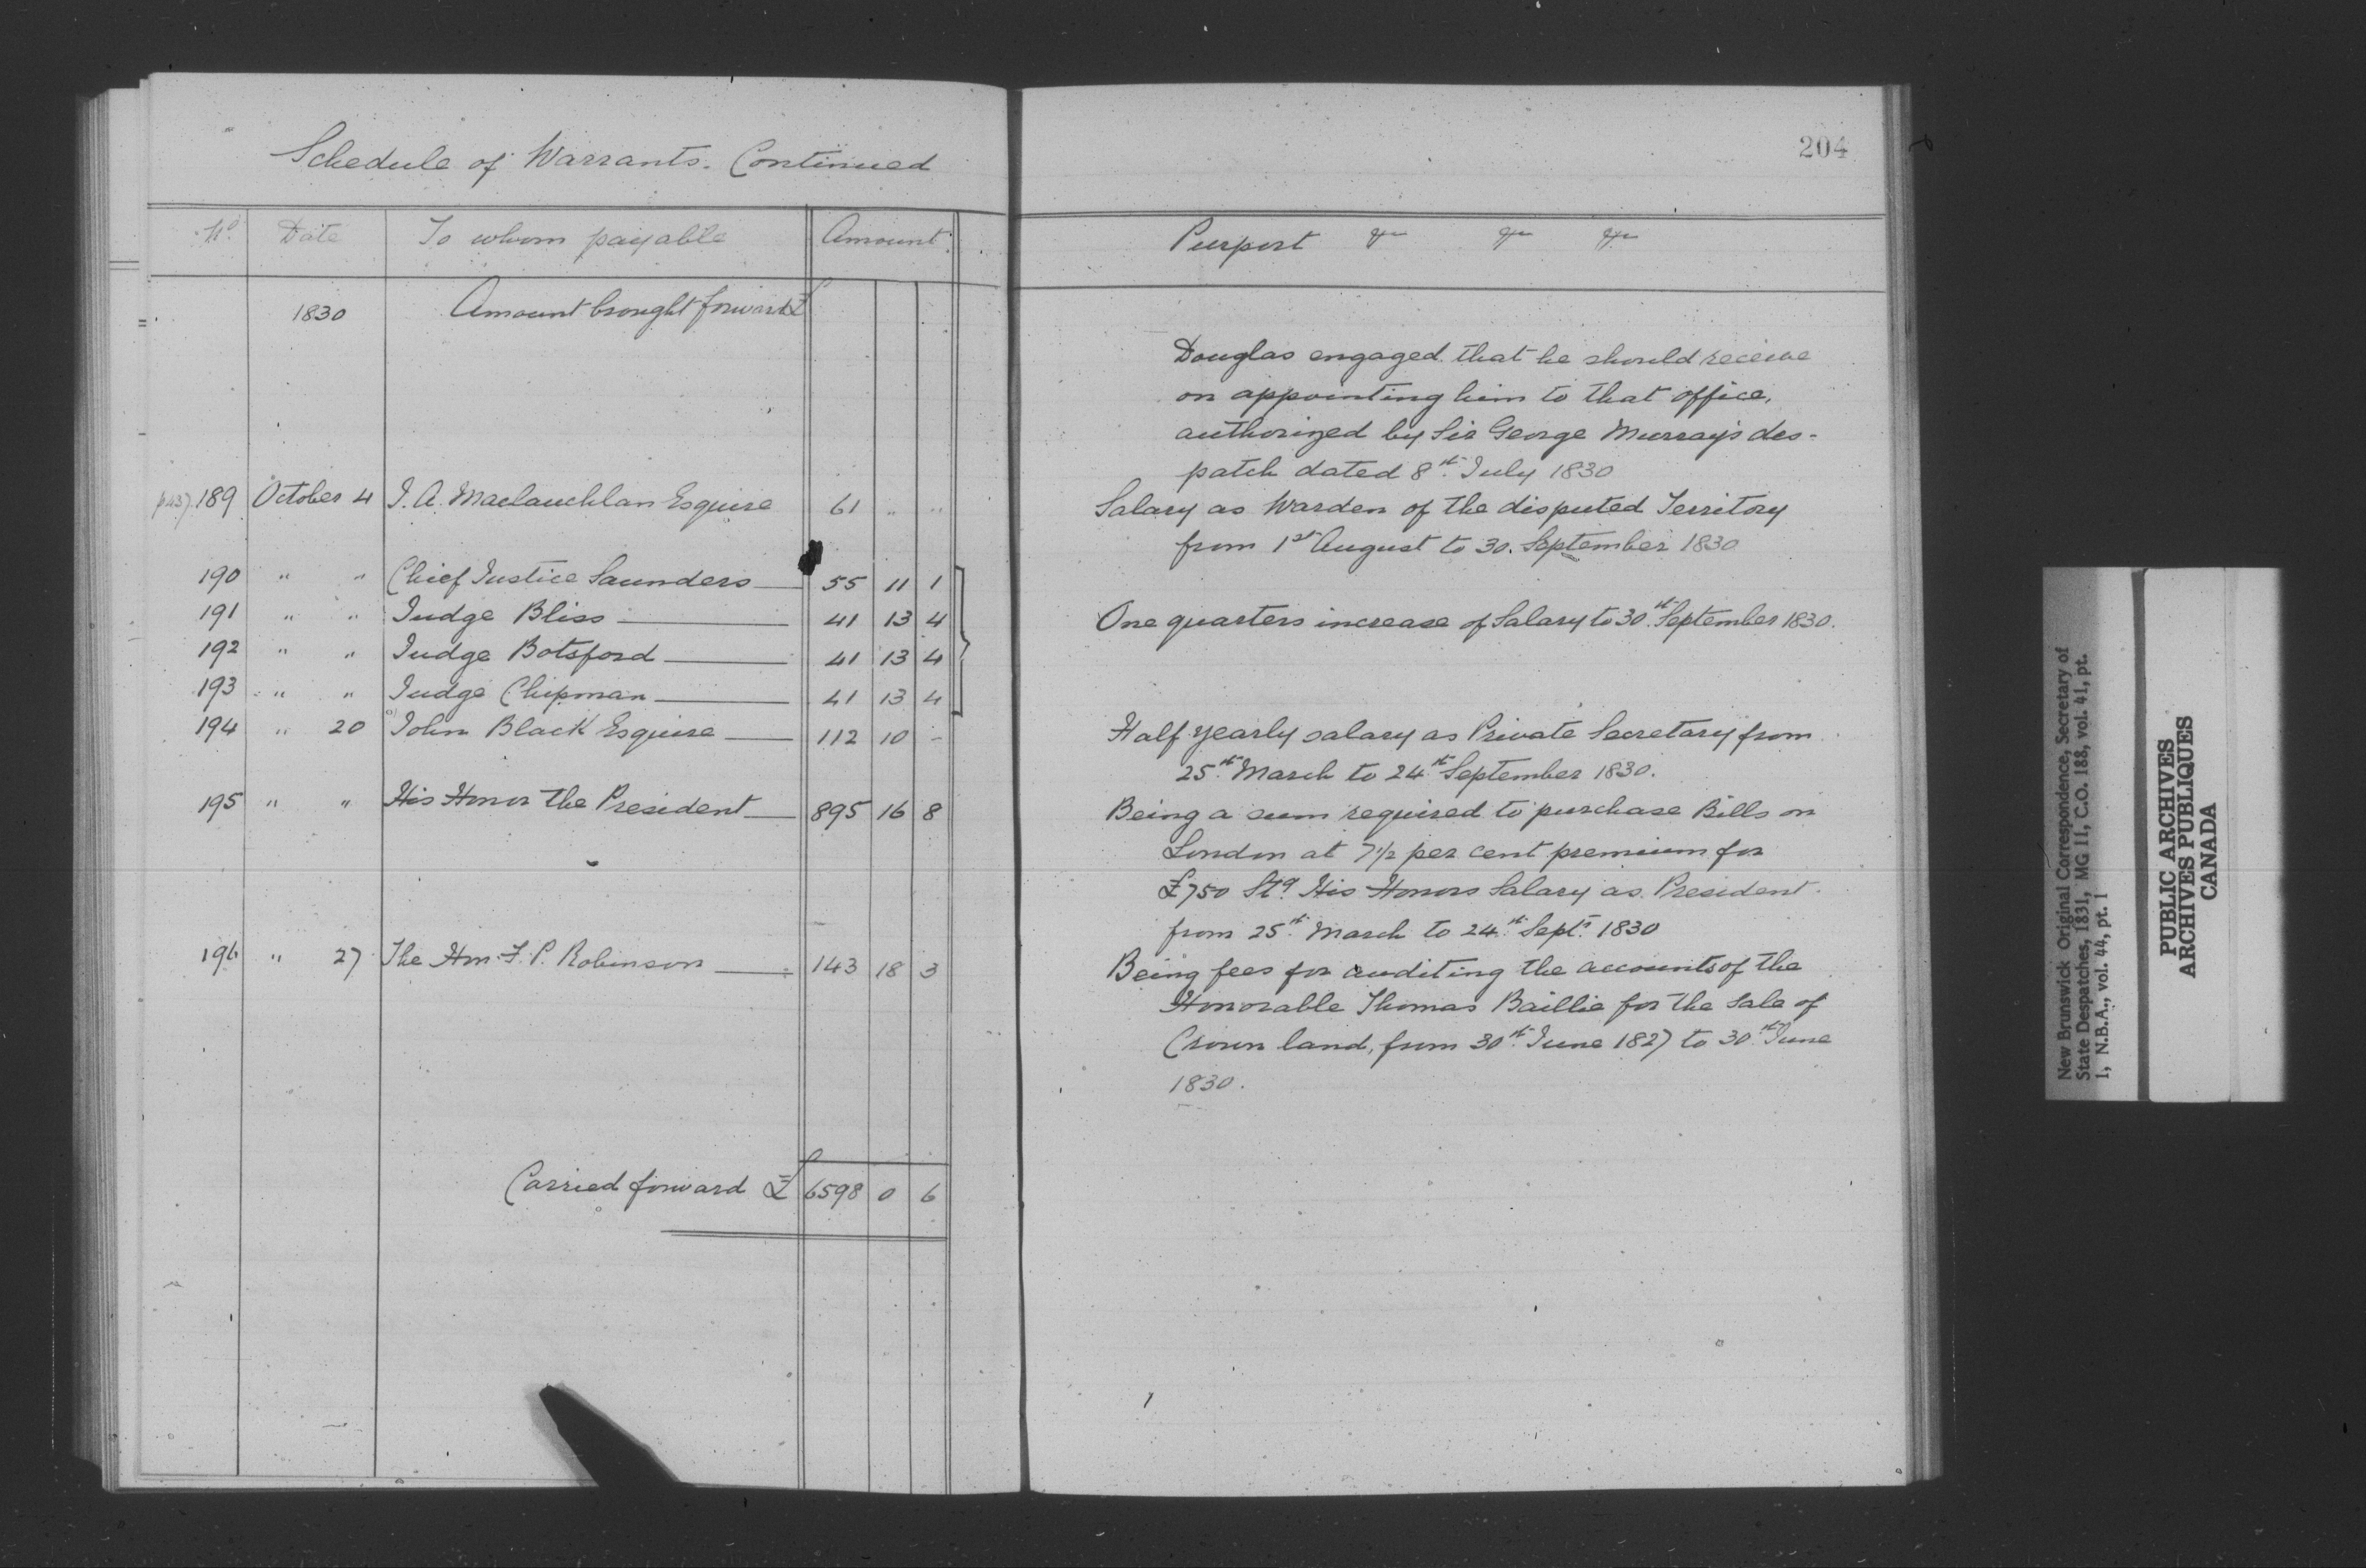 Schedule of Warrants. Continued
No. Date To whom payable Amount
1830 Amount brought forward £
189 October 4 J. A. Maclauchlan Esquire 61 " "
190 " " Chief Justice Saunders 55 11 1
191 " " Judge Bliss 41 13 4
192 " " Judge Botsford 41 13 4
193 " " Judge Chipman 41 13 4
194 " 20 John Black Esquire 112 10 -
195 " " His Honor the President 895 16 8
196 " 27 The Hon. F. P. Robinson 143 18 3
Carried forward £ 6598 0 6
204
Purport &c &c &c
Douglas engaged that he should receive
on appointing him to that office,
authorized by Sir George Murray's des-
patch dated 8th July 1830
Salary as Warden of the disputed Territory
from 1st August to 30. September 1830
One quarters increase of Salary to 30th September 1830.
Half yearly salary as Private Secretary from
25th March to 24th September 1830.
Being a sum required to purchase Bills on
London at 7 1/2 per cent premium for
£750 Stg. His Honors Salary as President
from 25th March to 24th Sept. 1830
Being fees for auditing the accounts of the
Honorable Thomas Baillie for the sale of
Crown land, from 30th June 1827 to 30th June
1830.
New Brunswick Original Correspondence, Secretary of
State Despatches, 1831, MG 11, C.O. 188, vol. 41, pt.
1, N.B.A., vol. 44, pt. 1
PUBLIC ARCHIVES
ARCHIVES PUBLIQUES
CANADA